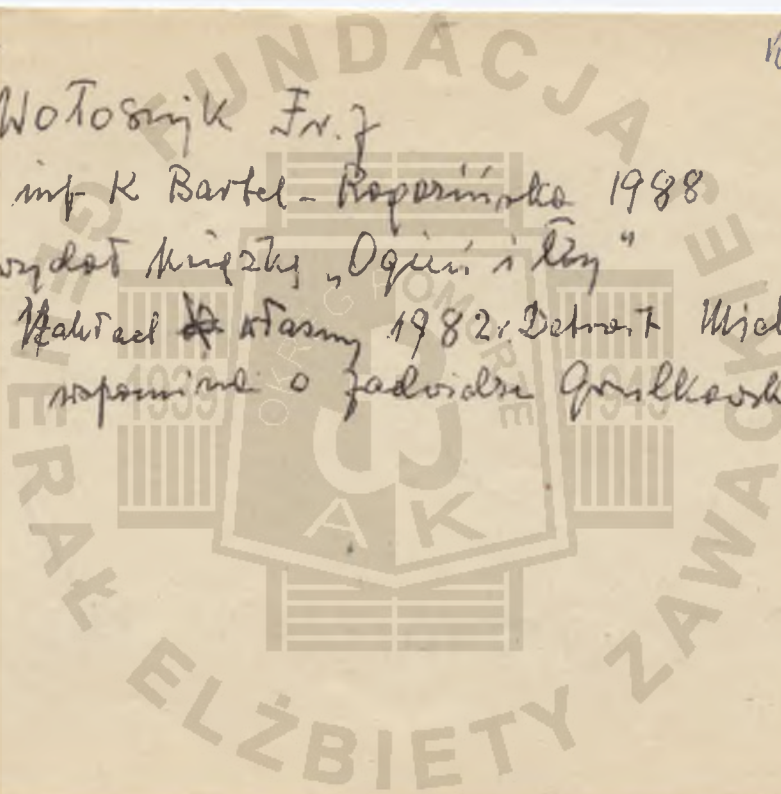 Wołoszyk Fr. J
inf K Bartel - Rogozińska 1988
wydał książkę „Ogień i łzy"
Nakład własny 1982r. Detroit Mich
wspomina o Jadwidze Grulkowsk
FUNDACJA GENERAŁ ELŻBIETY ZAWACKIEJ
OKRĘG POMORZE
1939 1945
AK